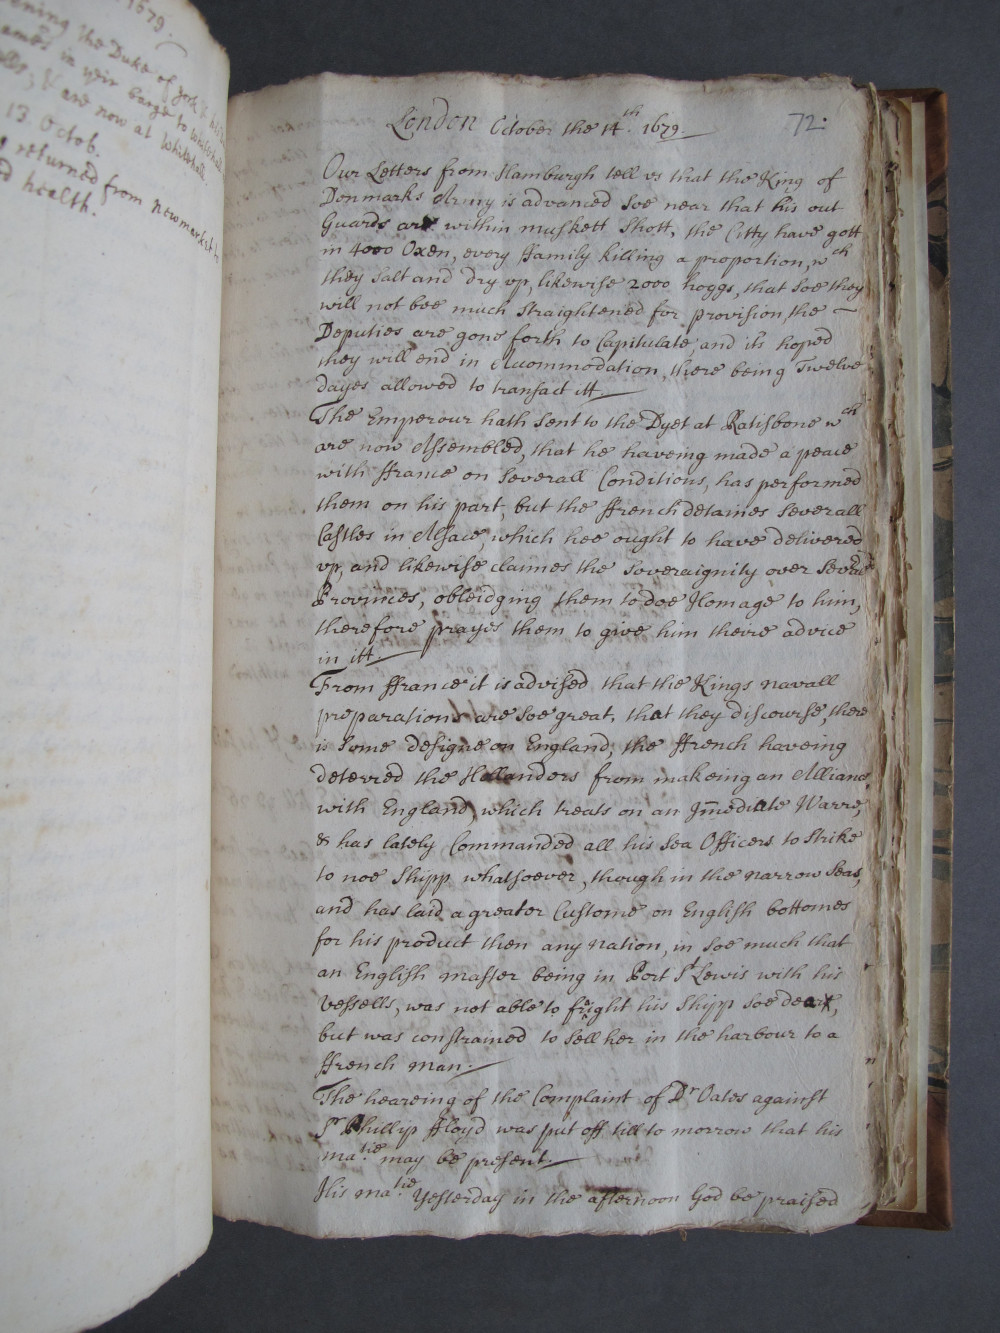 1679.
ening the Duke of york &
James in yeir barge to whitehall
& are now at Whitehall.
13. Octob.
returned from Newmarket in
d health.
London October the 14th. 1679.
72.
Our Letters from Hamburgh tell vs that the King of
Denmarks Army is advanced soe near that his out
Guards are within muskett Shott, the Citty have gott
in 4000 Oxen, every ffamily killing a proportion, wch
they salt and dry vp, likewise 2000 hoggs, that soe they
will not bee much straightened for provision, the
Deputies are gone forth to Capitulate, and its hoped
they will end in Accommodation, there being Twelve
dayes allowed to transact itt.
The Emperour hath sent to the Dyet at Ratisbone wch
are now Assembled, that he haveing made a peace
with ffrance on severall Conditions, has performed
them on his part, but the ffrench detaines severall
Castles in Alsace, which hee ought to have delivered
vp, and likewise claimes the soveraignity over severall
Provinces, obleidging them to doe Homage to him,
therefore prayes them to give him theire advice
in itt.
From ffrance it is advised that the Kings navall
preparations are soe great, that they discourse, there
is some designe on England; the ffrench haveing
deterred the Hollanders from makeing an Alliance
with England, which treats on an Im̄ediate Warre,
& has lately Commanded all his Sea Officers to strike
to noe Shipp whatsoever, though in the narrow Seas,
and has laid a greater Custome on English bottomes
for his product then any nation, in soe much that
an English master being in Port St Lewis with his
vessells, was not able to freight his Shipp soe dear,
but was constrained to sell her in the harbour to a
ffrench man.
The heareing of the Complaint of Dr Oates against
Sr Phillip ffloyd was put off till to morrow that his
matie may be present.
His matie Yesterday in the afternoon God be praised